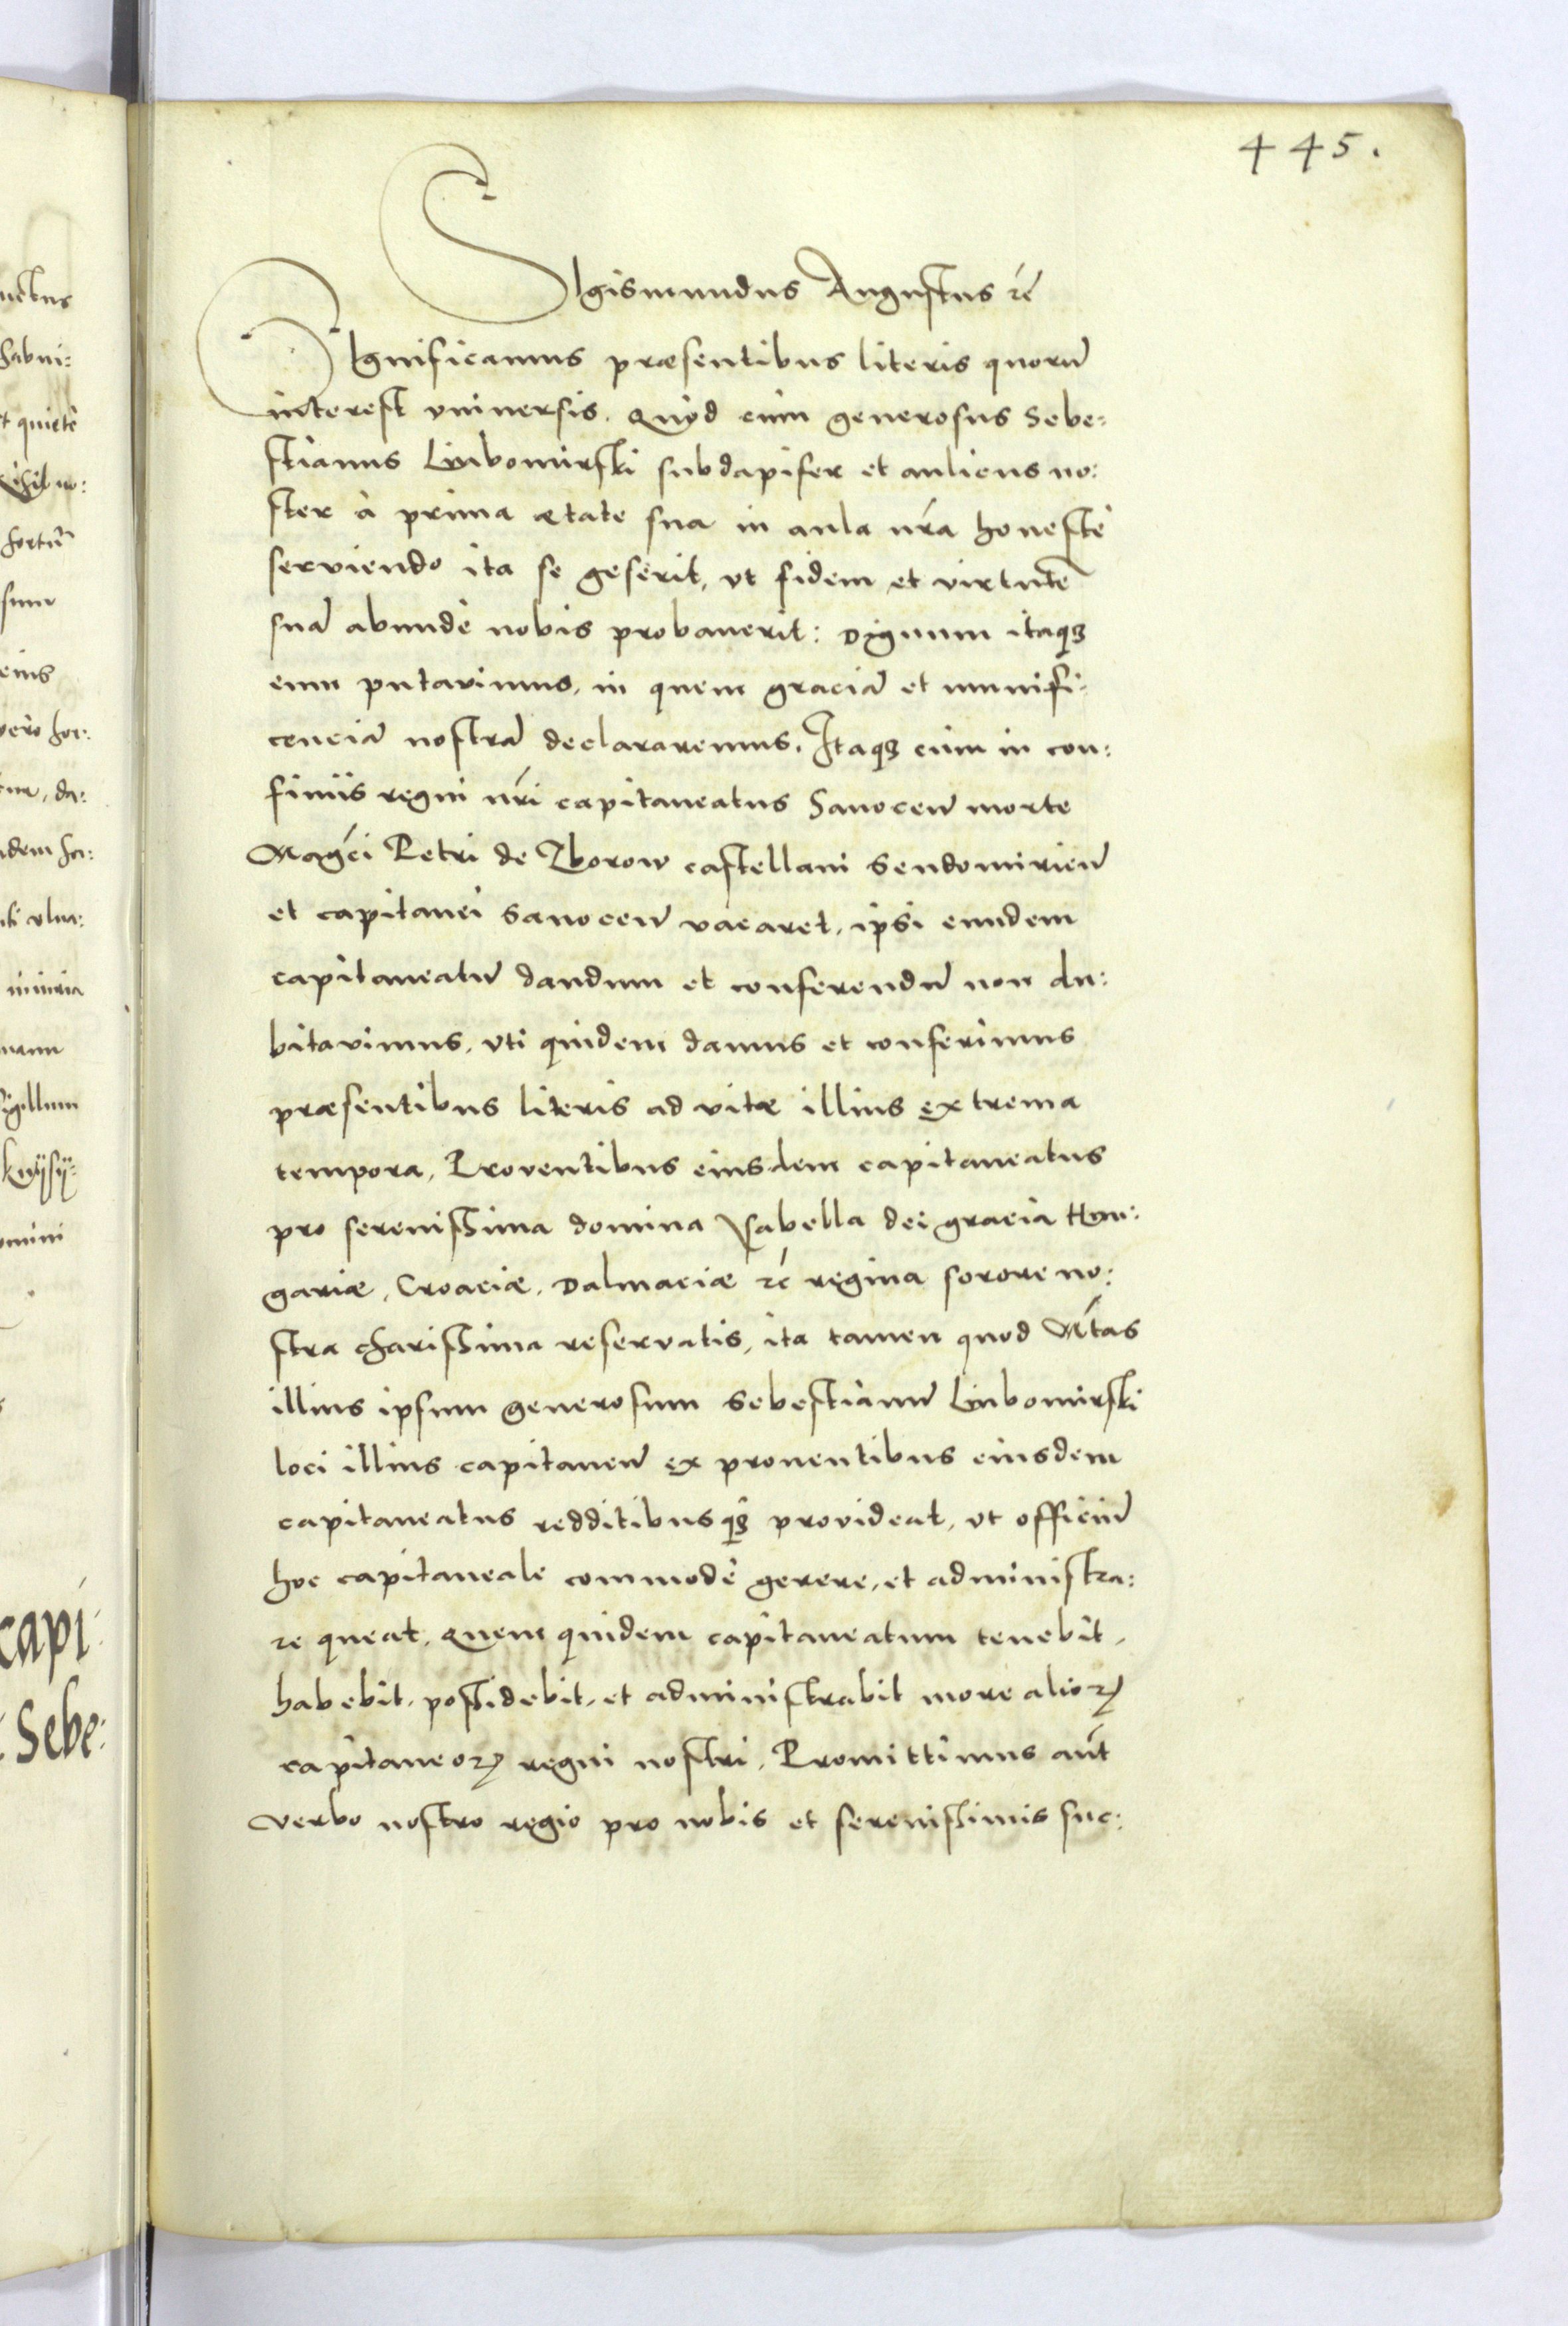 445.
SIgismundus Augustus rc̃
SIgnificamus præsentibus literis quorũ
interest vniuersis. Quòd cùm generosus Sebe:
stianus Liubomirski subdapifer et aulicus no:
ster à prima ætate sua in aula nr̃a honestè
serviendo ita se gesserit, vt fidem et virtutẽ
suã abundè nobis probauerit: Dignum itaqꝫ
eum putavimus, in quem graciã et munifi:
cenciã nostrã declararemus. Itaqꝫ cùm in con:
finiis regni nr̃i capitaneatus Sanoceñ morte
Magc̃i Petri de Zborow castellani Sendomirieñ
et capitanei Sanoceñ vacaret, ipsi eundem
capitaneatũ dandum et conferendũ non du:
bitavimus, vti quidem damus et conferimus
præsentibus literis ad vitæ illius extrema
tempora, Proventibus eiusdem capitaneatus
pro serenissima domina Ysabella dei gracia Hun:
gariæ, Croaciæ, Dalmaciæ rc̃ regina sorore no:
stra charissima reservatis, ita tamen quod Mt̃as
illius ipsum generosum Sebestianũ Liubomirski
loci illius capitaneũ ex prouentibus eiusdem
capitaneatus redditibusqꝫ provideat, vt officiũ
hoc capitaneale commodè gerere, et administra:
re queat. Quem quidem capitaneatum tenebit,
habebit, possidebit, et administrabit more alioꝝ
capitaneoꝝ regni nostri, Promittimus aut̃
verbo nostro regio pro nobis et serenissimis suc: